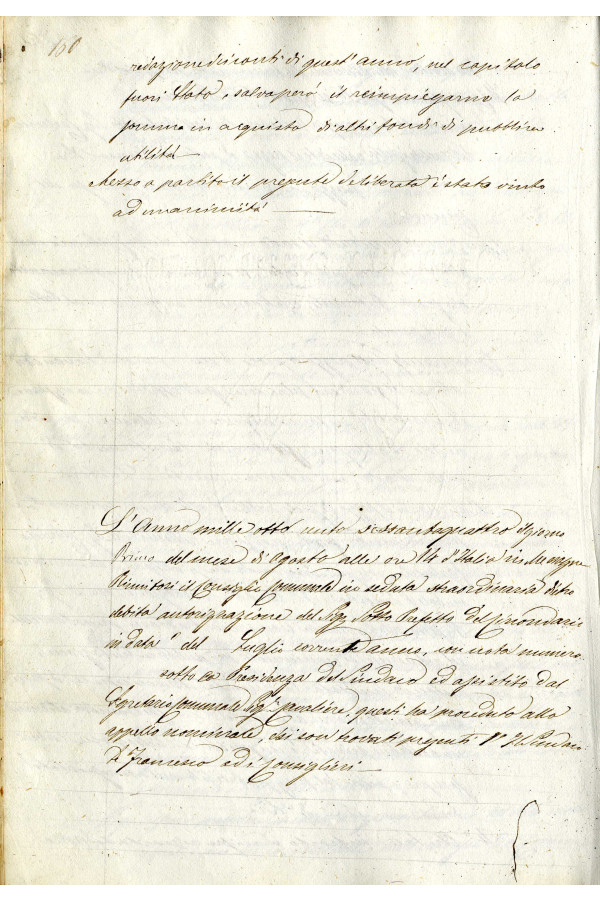 160
redazione dei conti di quest'anno, nel capitolo
fuori Stato, salvo però il reimpiegarne la
somma in acquisto di altri fondi di pubblica
utilità
Messo a partito il presente deliberato è stato vinto
ad unanimità
L'Anno mille otto cento sessantaquattro il giorno
Primo del mese di agosto alle ore 14 d'Italia in
Riunitosi il Consiglio Comunale in seduta straordinaria dietro
debita autorizzazione del Sig Sotto Prefetto del Circondario
in data del Luglio corrente anno, con nota numero
sotto la Presidenza del Sindaco ed assistito dal
Segretario Comunale Sig. questi ha proceduto allo
appello nominale, chi son trovati presenti Il Sindaco
D. Francesco ed i Consiglieri